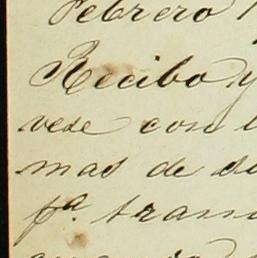 Febrero 1
Recibo y
vese con l
mas de su
pª. trans